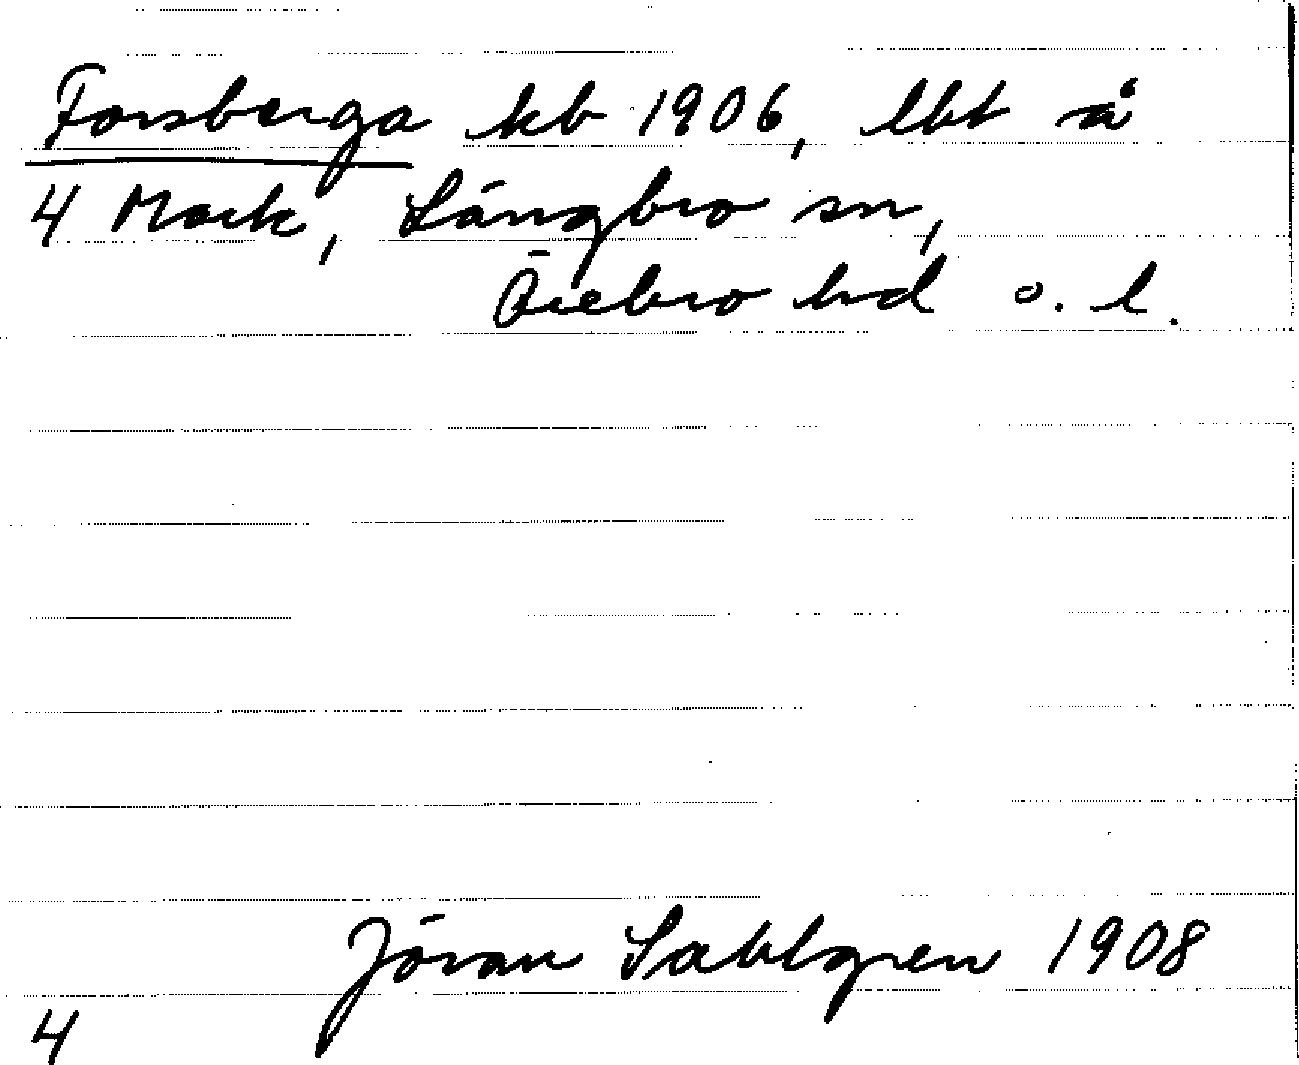 Forsberga kb 1906, lbt å
4 Mark, Längbro sn,
Örebro hd o. l.
Jöran Sahlgren 1908
4